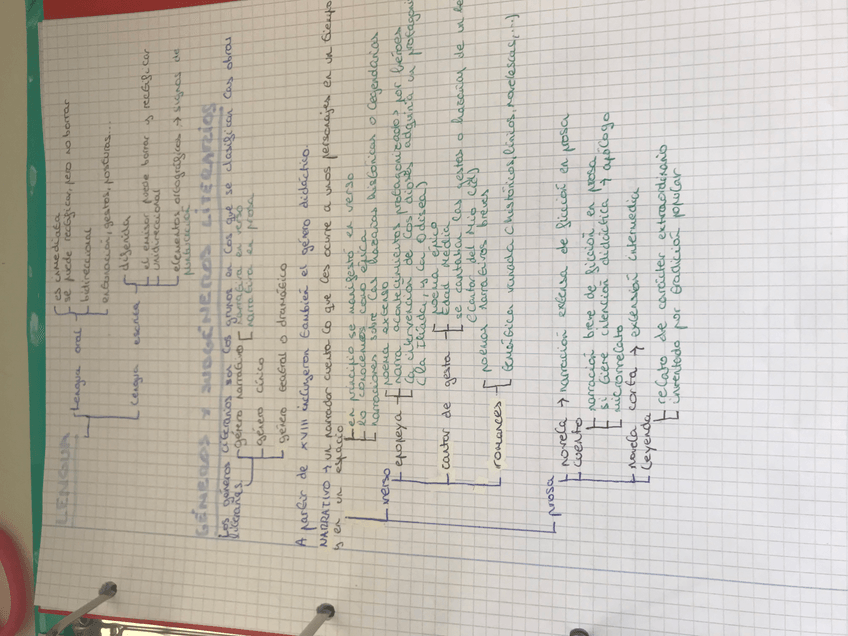 LENGUA
lengua oral
es inmediata
se puede rectificar, pero no borrar
bidireccional
entonación, gestos, posturas...
lengua escrita
diferida
el emisor puede borrar y rectificar
unidireccional
elementos ortográficos → signos de
puntuación
GÉNEROS Y SUBGÉNEROS LITERARIOS
Los géneros literarios son los grupos en los que se clasifican las obras
literarias.
género narrativo
narrativa en verso
narrativa en prosa
género lírico
género teatral o dramático
A partir de XVIII incluyeron también el género didáctico.
NARRATIVO → un narrador cuenta lo que les ocurre a unos personajes en un tiempo
y en un espacio
verso
en principio se manifestó en verso
lo conocemos como épica
narraciones sobre las hazañas históricas o legendarias
epopeya
poema extenso
narra acontecimientos protagonizados por héroes
la intervención de los dioses adquiría un
(la Ilíada, y la Odisea)
cantar de gesta
poema épico
Edad Media
se cantaban las gestas o hazañas de un
(Cantar del Mio Cid)
romances
poemas narrativos breves
temática variada (históricos, líricos, novelescos,...)
prosa
novela → narración extensa de ficción en prosa
cuento
narración breve de ficción en prosa
si tiene intención didáctica → apólogo
microrrelato
novela corta → extensión intermedia
leyenda
relato de carácter extraordinario
inventado por tradición popular